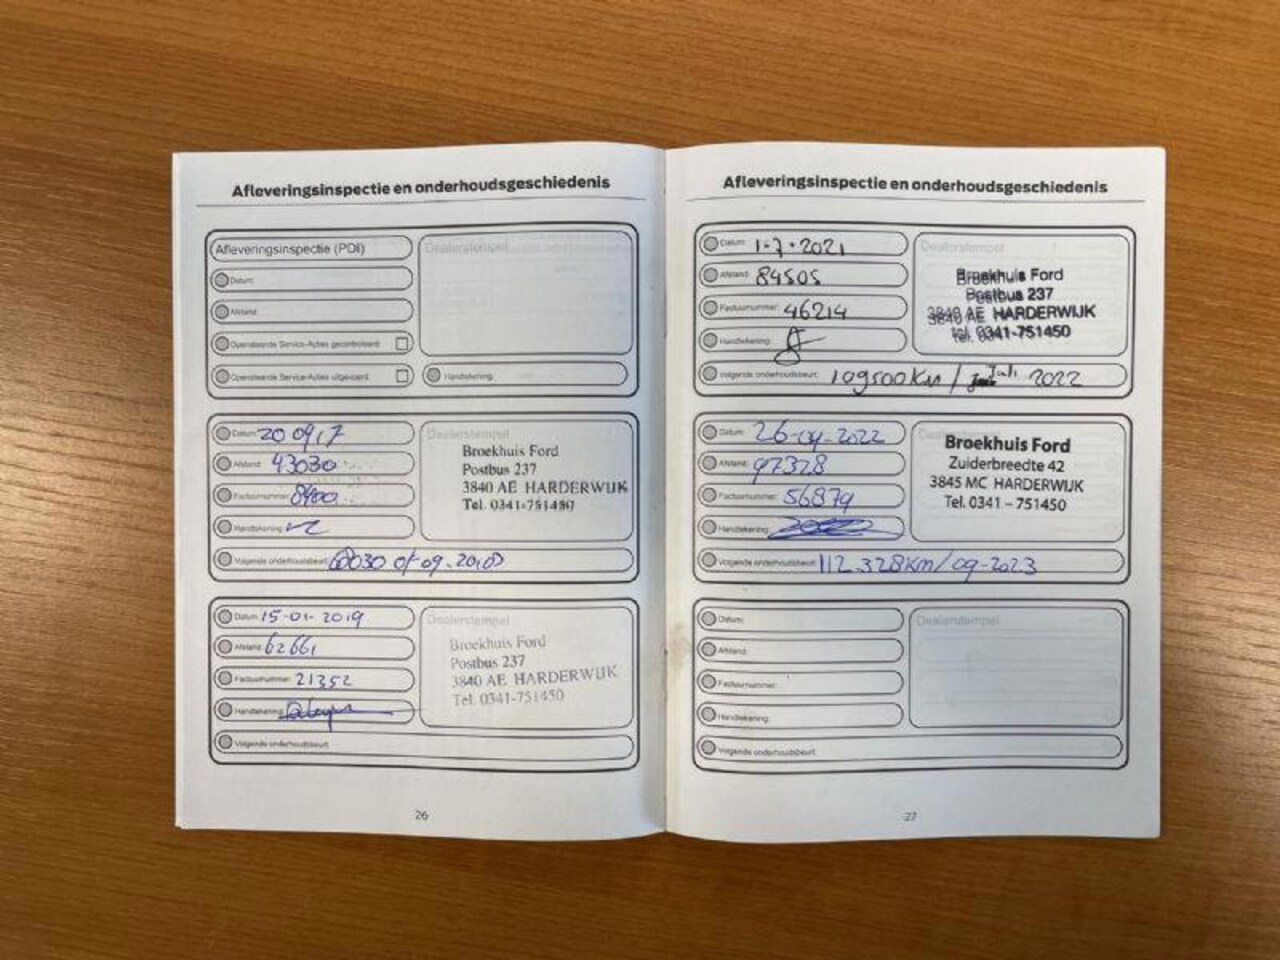 Afleveringsinspectie en onderhoudsgeschiedenis
Afleveringsinspectie (PDI)
Dealerstempel
Datum:
Afstand:
Openstaande Service-Acties gecontroleerd:
Openstaande Service-Acties uitgevoerd:
Handtekening:
Datum:
Dealerstempel
Broekhuis Ford
Postbus 237
3840 AE HARDERWIJK
Tel. 0341-751450
Afstand: 43030
Factuurnummer: 8400
Handtekening:
Volgende onderhoudsbeurt:
Datum: 15-01-2019
Dealerstempel
Broekhuis Ford
Postbus 237
3840 AE HARDERWIJK
Tel. 0341-751450
Afstand: 62661
Factuurnummer: 21352
Handtekening:
Volgende onderhoudsbeurt:
26
Afleveringsinspectie en onderhoudsgeschiedenis
Datum: 1-7-2021
Dealerstempel
Broekhuis Ford
Postbus 237
3840 AE HARDERWIJK
tel. 0341-751450
Afstand: 84505
Factuurnummer: 46214
Handtekening:
Volgende onderhoudsbeurt: 109500 Km / Juli 2022
Datum: 26-09-2022
Dealerstempel
Broekhuis Ford
Zuiderbreedte 42
3845 MC HARDERWIJK
Tel. 0341 – 751450
Afstand: 97328
Factuurnummer: 56879
Handtekening:
Volgende onderhoudsbeurt: 112.328 Km / 09-2023
Datum:
Dealerstempel
Afstand:
Factuurnummer:
Handtekening:
Volgende onderhoudsbeurt:
27